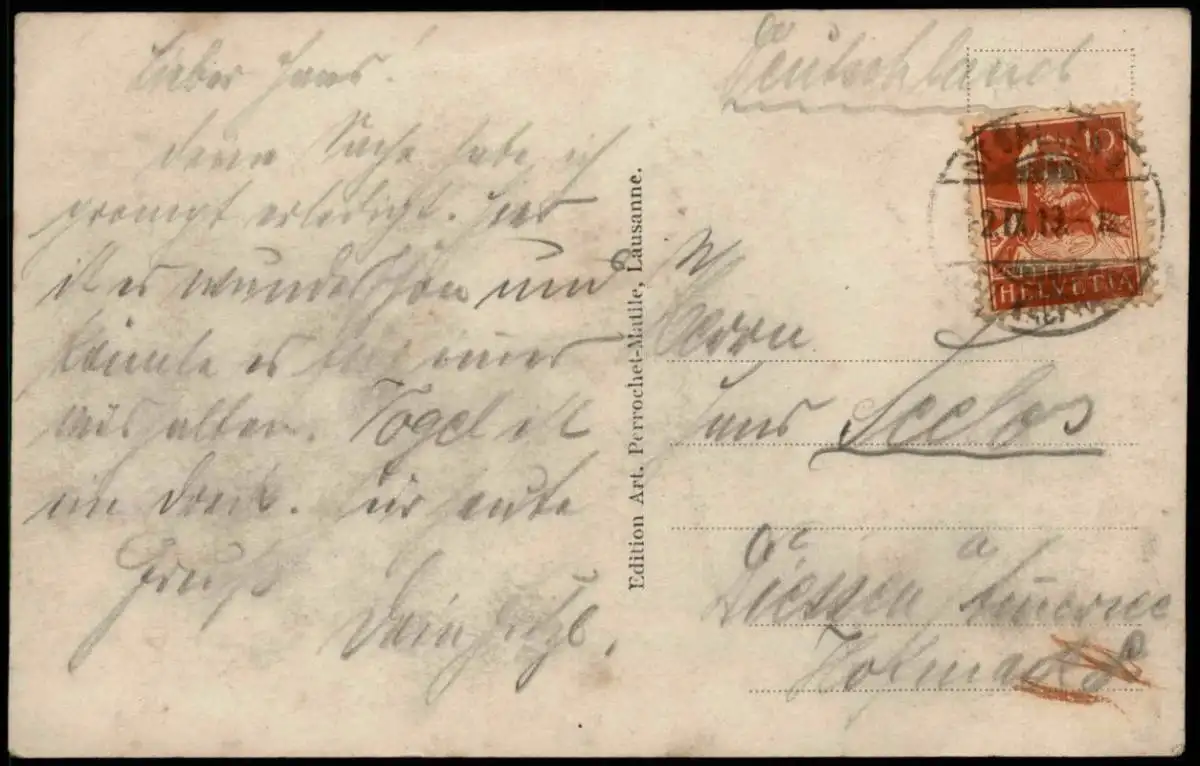 Lieber Hans!
Deine Sache habe ich
prompt erledigt. Hier
ist es wunderschön und
könnte es hier immer
aushalten. Vogel ist
im Druck. Für heute
Gruß
Dein
Edition Art. Perrochet-Matile, Lausanne.
Deutschland
10
HELVETIA
Herrn
Hans Seelos
Diessen a/Ammersee
Hofmark